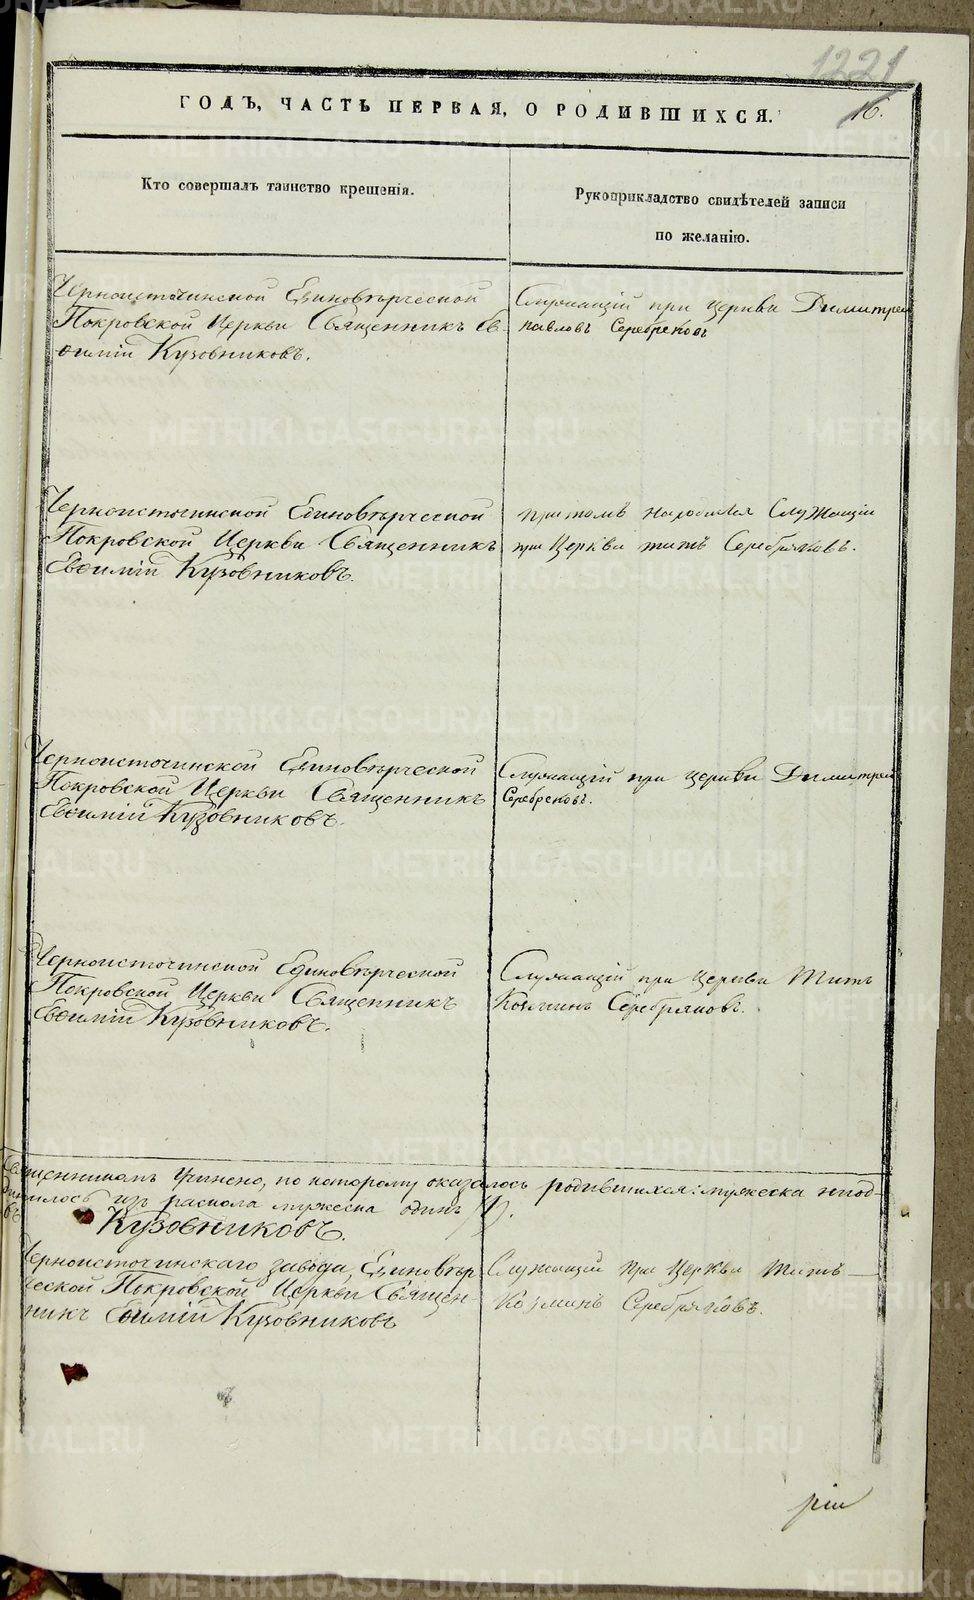 1221
16.
ГОДЪ, ЧАСТЬ ПЕРВАЯ, О РОДИВШИХСЯ.
Кто совершалъ таинство крещенія.
Рукоприкладство свидѣтелей записи
по желанію.
Черноисточинской Единовѣрческой
Покровской Церкви Священникъ Ев-
ѳимій Кузовниковъ.
Служащій при церкви Димитрей
павловъ Серебрековъ
Черноисточинской Единовѣрческой
Покровской Церкви Священникъ
Евѳимій Кузовниковъ.
притомъ находился Служащій
при Церкви титъ Серебряковъ.
Черноисточинской Единовѣрческой
Покровской Церкви Священникъ
Евѳимій Кузовниковъ.
Служащій при церкви Димитрей
Серебрековъ.
Черноисточинской Единовѣрческой
Покровской Церкви Священникъ
Евѳимій Кузовниковъ.
Служащій при Церкви Титъ
Козминъ Серебряковъ.
Священникомъ Учинено, по которому оказалось родившихся: мужеска
изъ раскола мужеска одинъ (1).
Кузовниковъ.
Черноисточинскаго завода, Единовѣр
ческой Покровской Церкви Священ-
никъ Евѳимій Кузовниковъ
Служащій при Церкви Титъ
Козминъ Серебряковъ.
METRIKI.GASO-URAL.RU